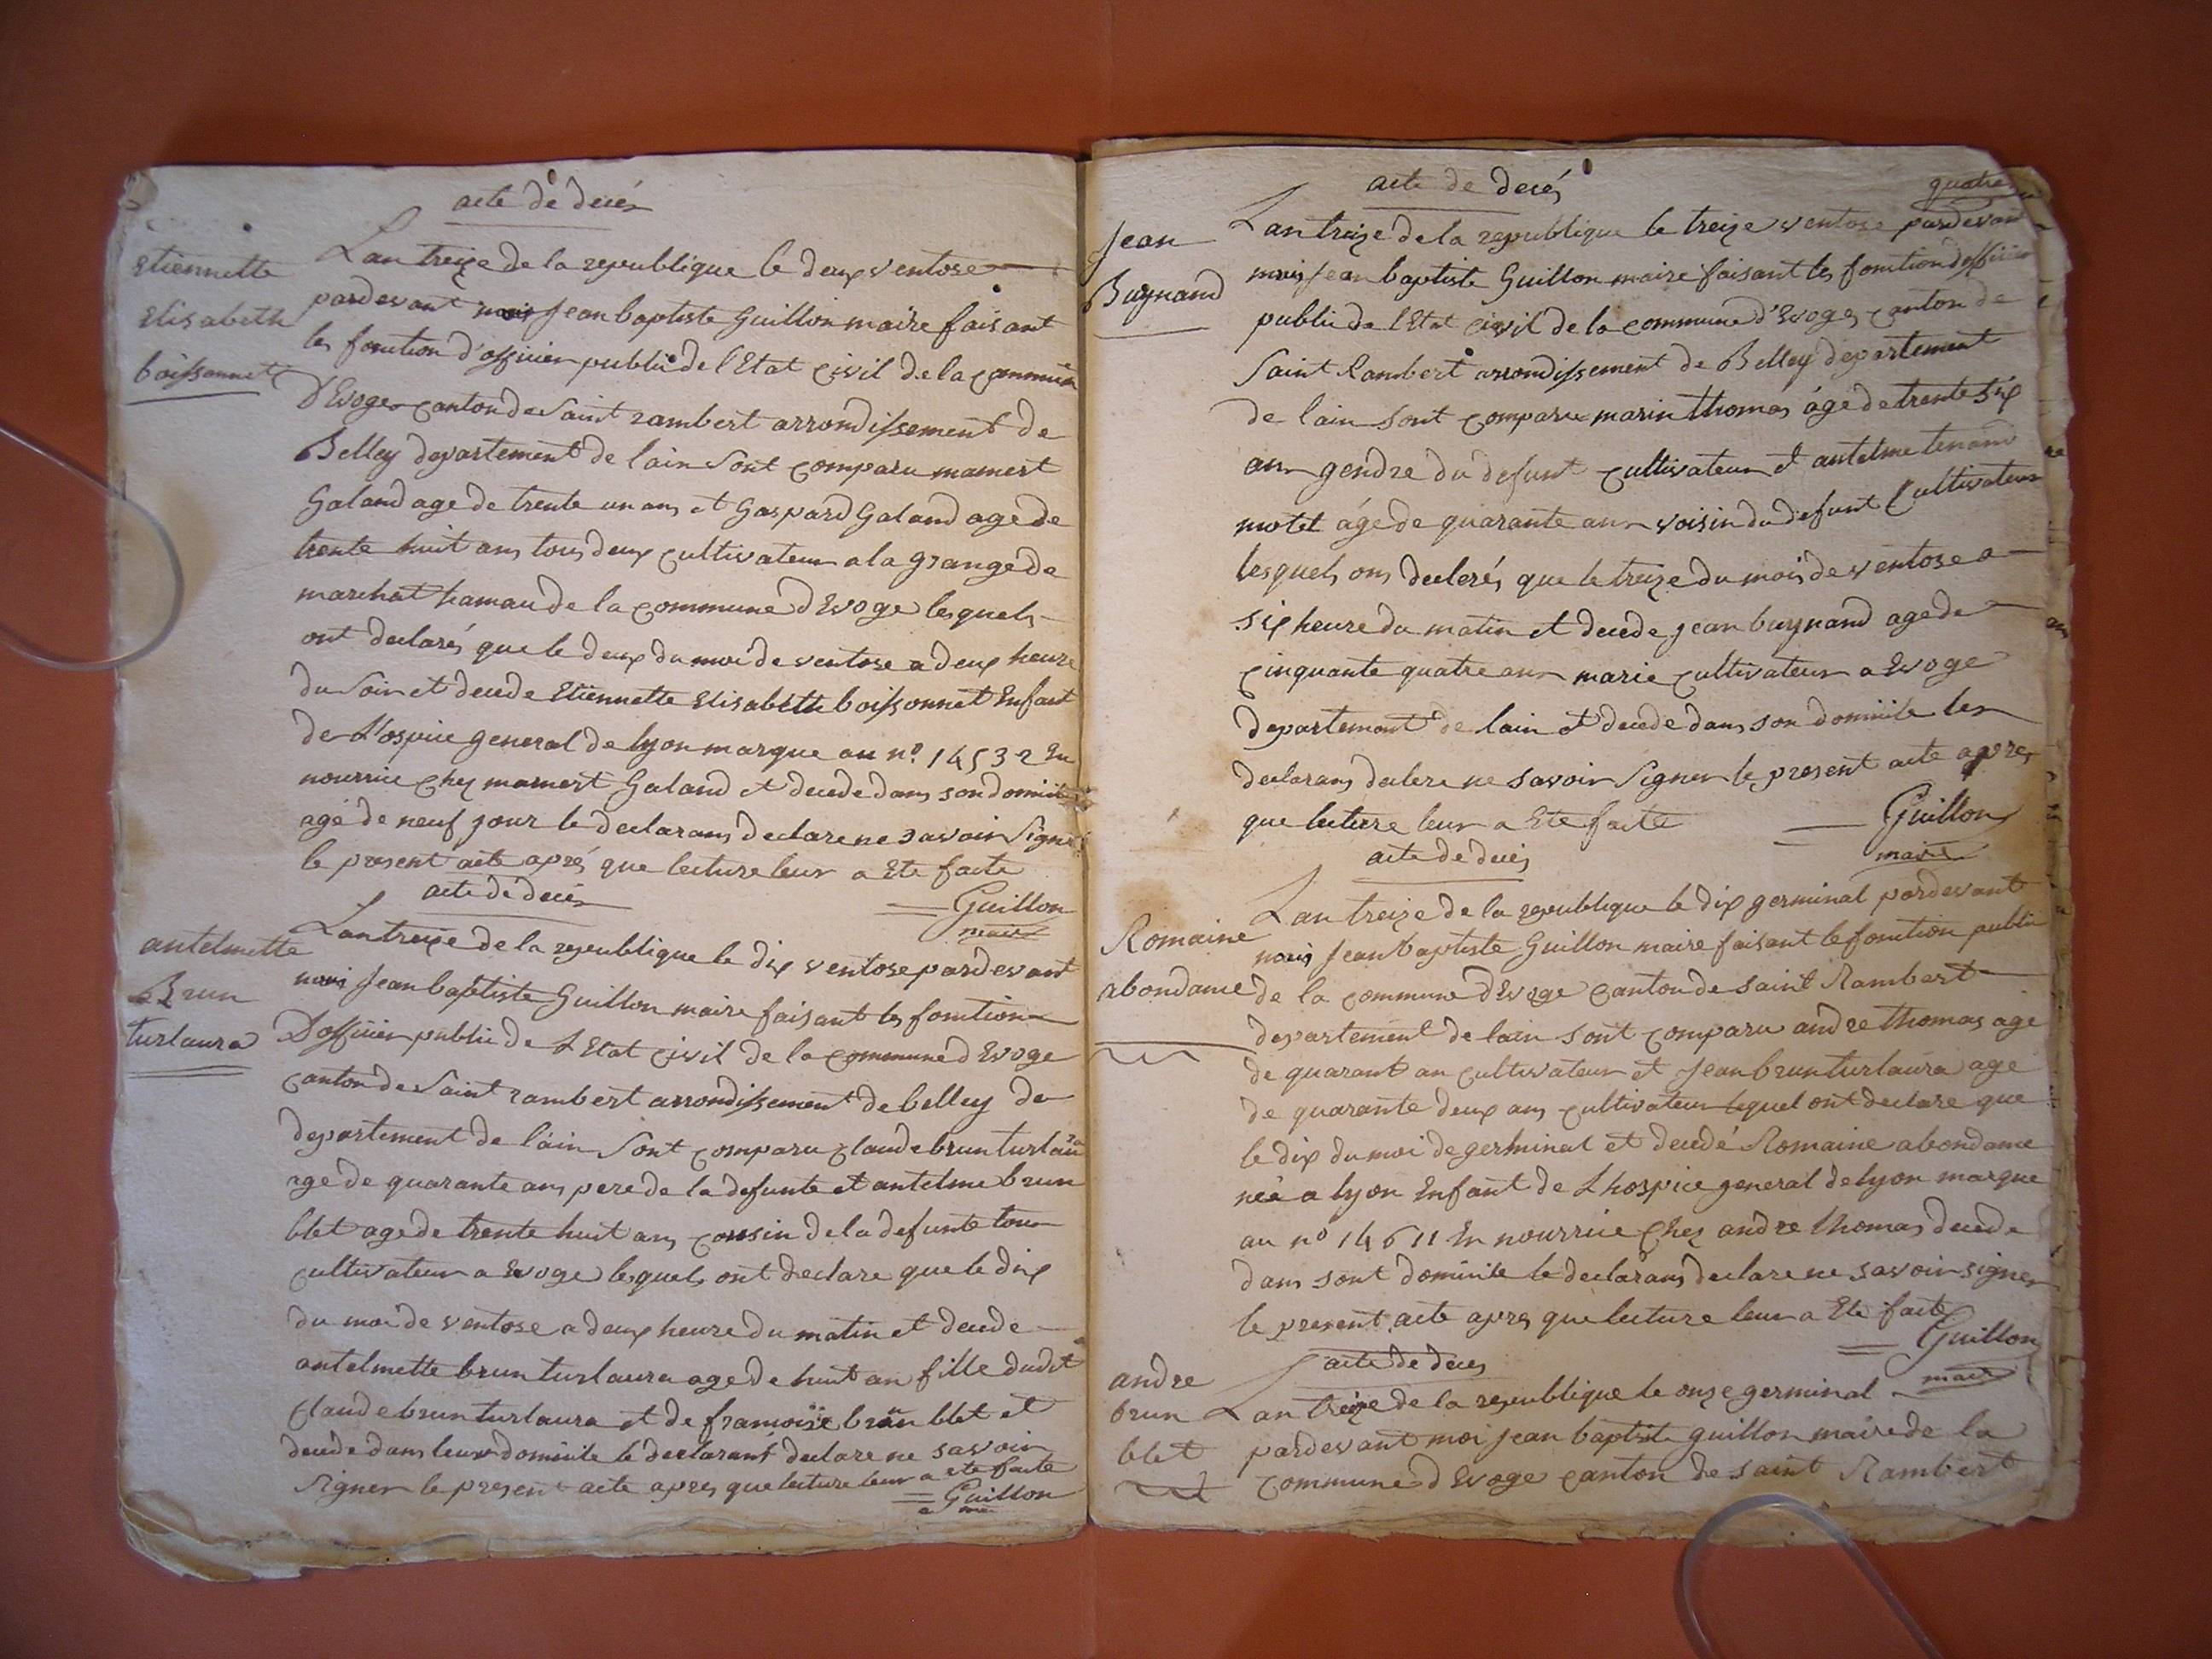 acte de décés
etiennette
Elisabeth
boissonnet
Lan treize de la republique le deux ventose
pardevant nous Jean baptiste Guillon maire faisant
les fonction d'officier public de l'Etat civil de la commune
D'Evoges canton de Saint rambert arrondissement de
Belley departement de lain Sont comparu mamert
Galand age de trente un ans et Gaspard Galand age de
trente huit ans tous deux cultivateur a la grange de
marchat hamau de la commune d'Evoge lesquels
ont declarés que le deux du moi de ventose a deux heure
du Soir et decede Etiennette Elisabeth boissonnet Enfant
de L'ospice general de lyon marque au nº 14532 En
nourrice chez mamert Galand et decede dans son domicile
agé de neuf jour le declarans declare ne savoir Signé
le present acte aprés que lecture leur a Ete faite
Guillon
maire
acte de decés
antelmette
Brun
turlaura
Lan treize de la republique le dix ventose pardevant
nous Jean baptiste Guillon maire faisant les fonction
D'officier public de L'Etat civil de la commune d'Evoge
canton de Saint rambert arrondissement de belley de
departement de l'ain Sont comparu claude brun turlaura
age de quarante ans pere de la defunte et antelme brun
blet age de trente huit ans cousin de la defunte tous
cultivateur a Evoge lesquels ont declare que le dix
du moi de ventose a deux heure du matin et decede
antelmette brun turlaura age de huit an fille dudit
Claude brun turlaura et de francoise brun blet et
decede dans leur domicile le declarant declare ne savoir
Signer le present acte apres que lecture leur a ete faite
Guillon
acte de decés
quatre
Jean
Buynand
Lan treize de la republique le treize ventose pardevant
nous Jean baptiste Guillon maire faisant les fonction d'officier
public de l'Etat civil de la commune d'Evoges canton de
Saint Rambert arrondissement de Belley departement
de lain Sont comparu marin thomas ágé de trente six
ans gendre du defunt cultivateur et antelme tenand
motet ágé de quarante ans voisin du defunt Cultivateur
lesquels ons declerés que le treize du mois de ventose a
six heure du matin et decede jean buynand age de
cinquante quatre ans marie cultivateur a Evoge
departement de lain et decede dans son domicile les
declarans declere ne savoir Signer le present acte apres
que lecture leur a Ete faite
Guillon
maire
acte de decés
Romaine
abondance
Lan treize de la republique le dix germinal pardevant
nous Jean baptiste Guillon maire faisant le fonction public
de la commune d'Evoge canton de saint Rambert
departement de lain sont comparu andre thomas age
de quarant an cultivateur et jean brun turlaura age
de quarante deux ans cultivateur lequel ont declare que
le dix du moi de germinal et decedé Romaine abondance
neé a lyon Enfant de L'hospice general de lyon marque
au nº 14611 En nourrice chez andre thomas decede
dans sont domicile le declarans declare ne savoir signer
le present acte apres que lecture leur a Ete faite
Guillon
maire
acte de deces
andre
brun
blet
Lan treize de la republique le onze germinal
pardevant moi jean baptiste guillon maire de la
commune d'Evoge canton de saint Rambert